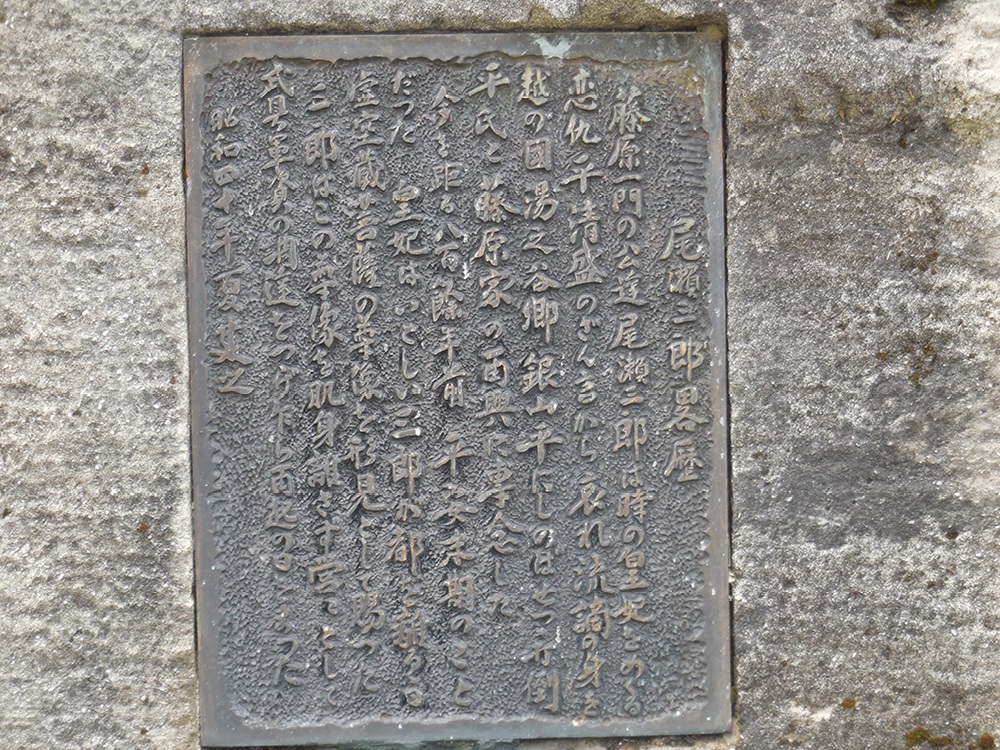 尾瀬三郎略歴
藤原一門の公達尾瀬三郎は時の皇妃をめぐる
恋仇平清盛のざん言から哀れ流謫の身を
越の國湯之谷郷銀山平にしのばせつゝ打倒
平氏と藤原家の再興に専念した
今を距る八百餘年前 平安末期のこと
だった 皇妃はいとしい三郎が都を離るる
虚空蔵菩薩の尊像を形見として賜った
三郎はこの尊像を肌身離さず
武具軍資の
昭和四十年夏建之